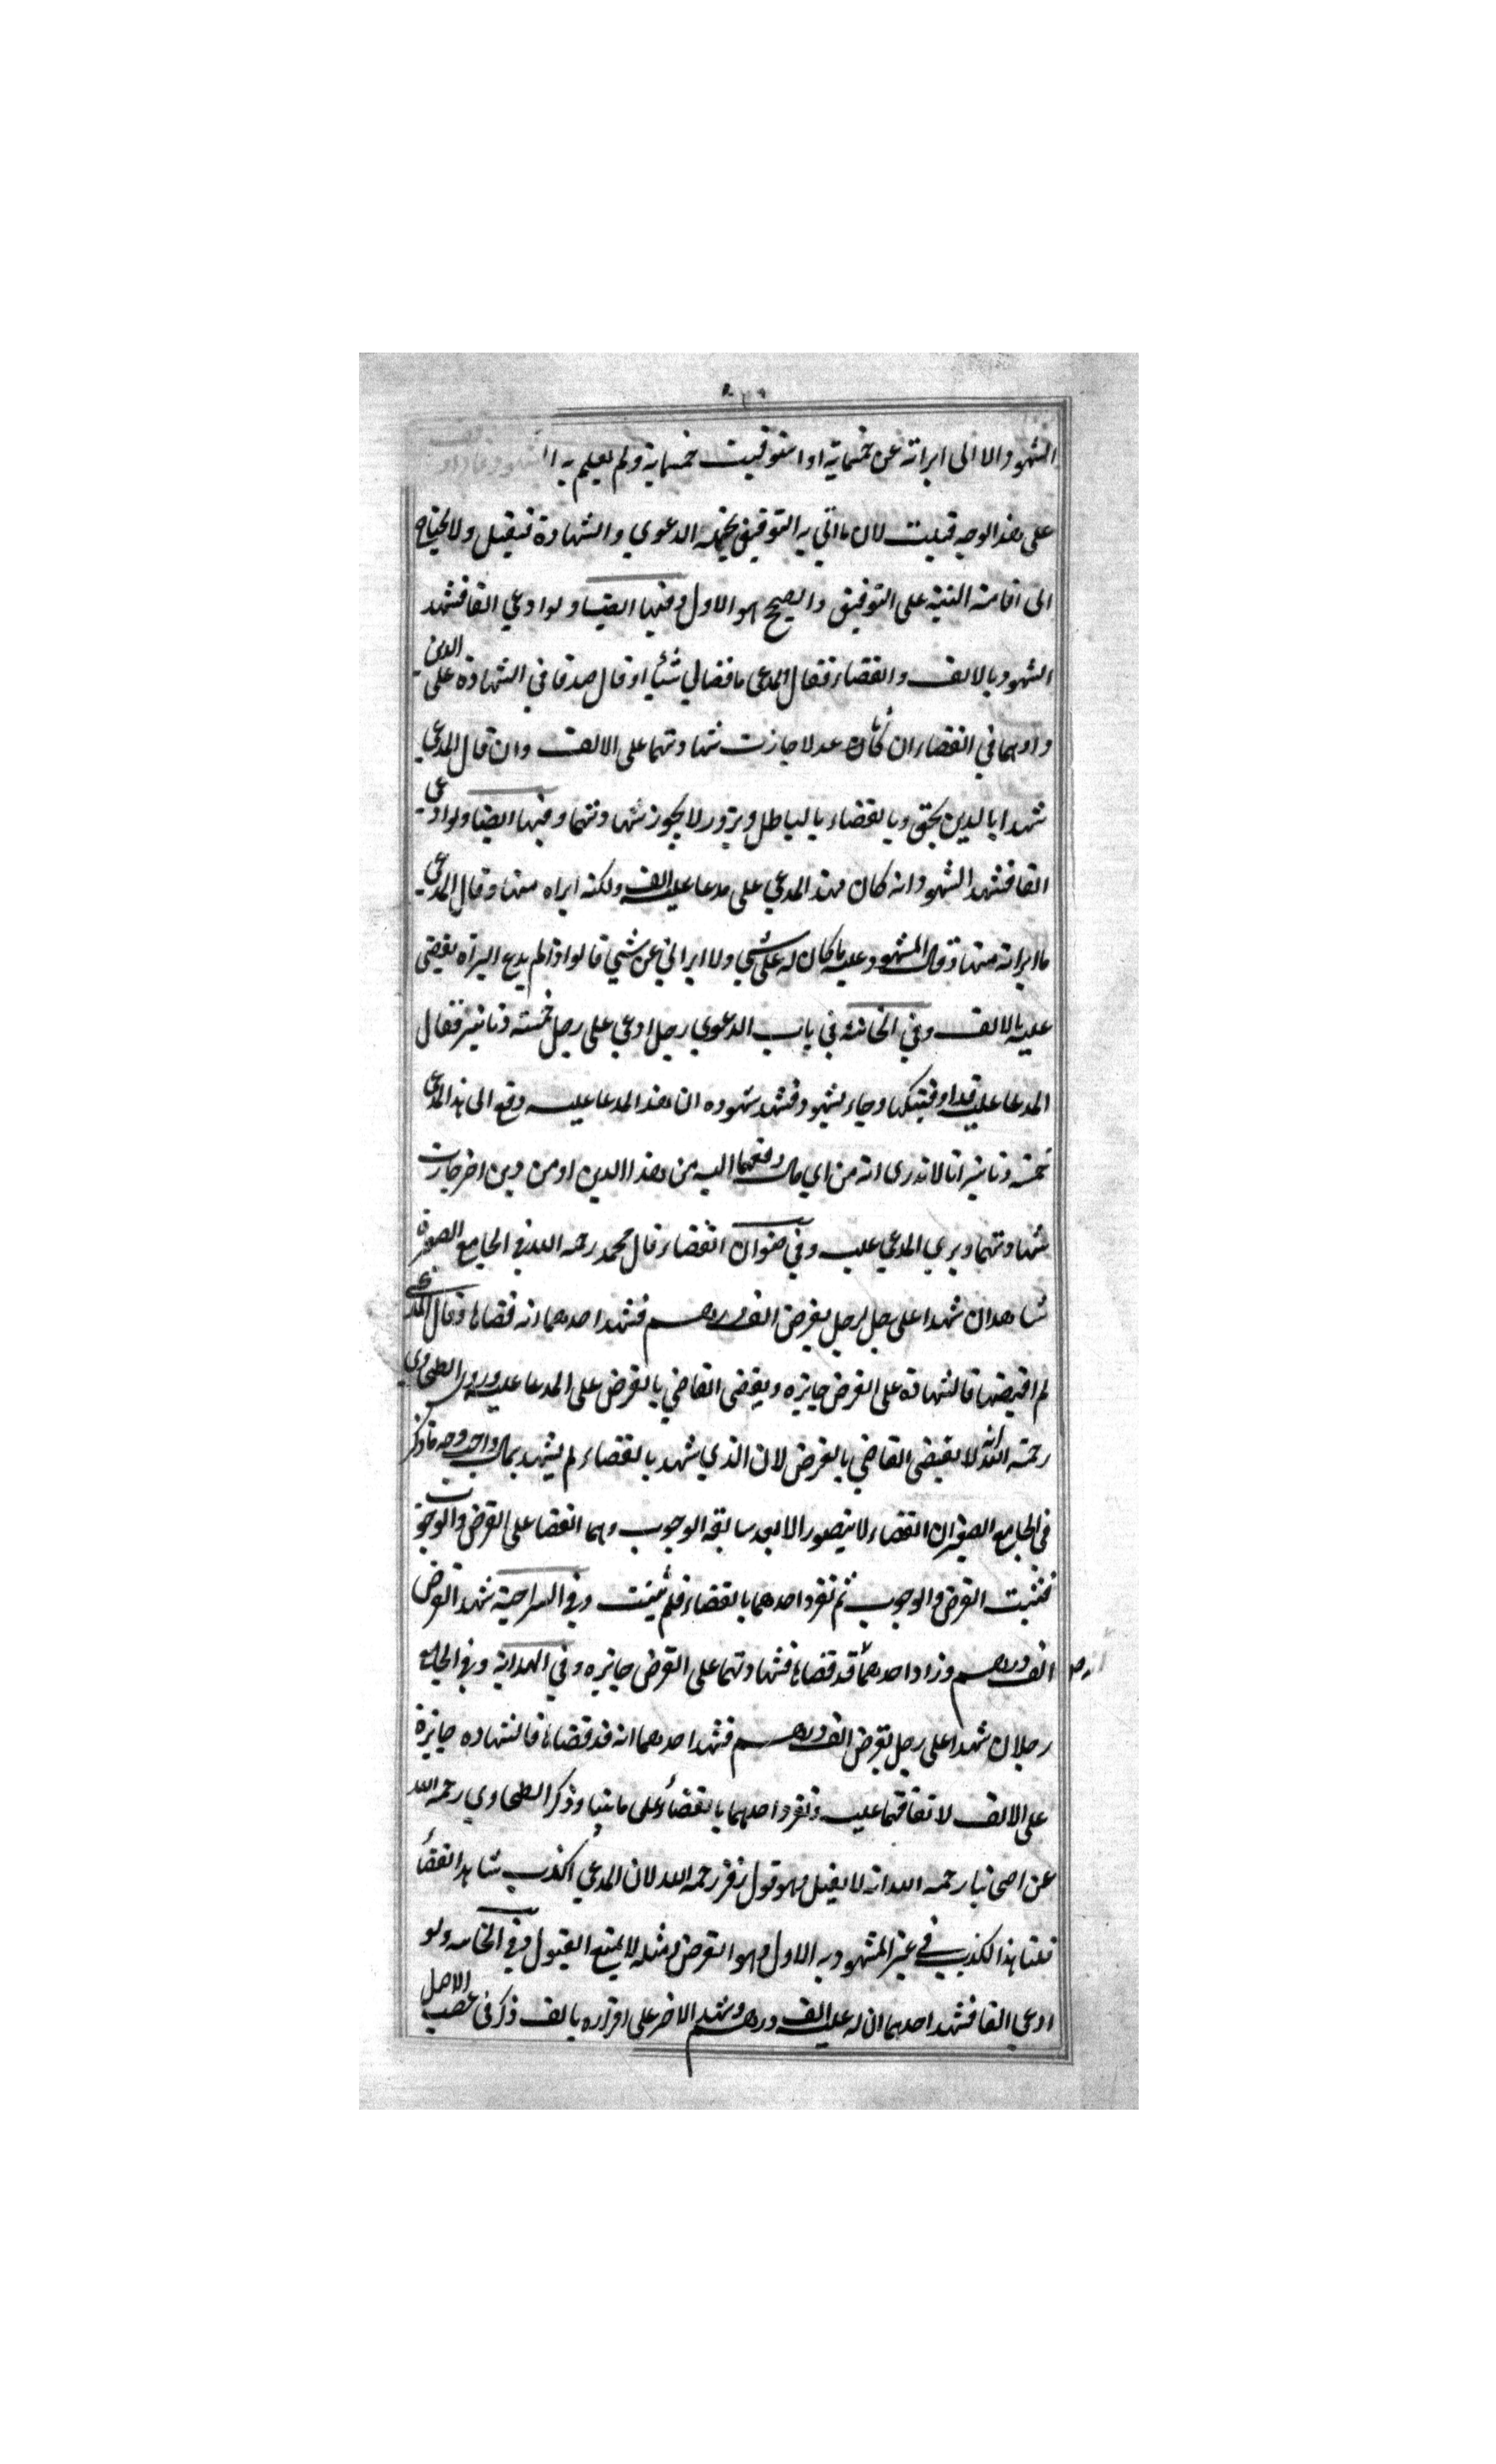 الشهود الا انى ابراته عن خمسماية او استوفيت خمسماية ولم يعلم به الشهود
على هذا الوجه قبلت لان ما اتي به التوفيق يحتمله الدعوي والشهادة فيقبل ولا يحتاج
الى اقامة البينة على التوفيق والصحيح هو الاول وفيها ايضا ولو ادعي الفا فشهد
الشهود بالالف والقضاء فقال المدعى ما قضاني شيئا او قال صدقا في الشهادة على الدين
واوهما في القضاء ان كانا عدلا جازت شهادتهما على الالف وان قال المدعي
شهدا بالدين بحق وبالقضاء بالباطل وبزور لا يجوز شهادتهما وفيها ايضا ولو ادعي
الفا فشهد الشهود انه كان لهذا المدعي على مدعا عليه الف ولكنه ابراه منها وقال المدعي
ما ابراته منها وقال المشهود عليه ما كان له على شي ولا ابراني عن شي قالوا اذا لم يدع البراة يقضى
عليه بالالف وفي الخانية في باب الدعوي رجل ادعي على رجل خمسة دنانير فقال
المدعا عليه قد اوفيتكها وجاء بشهود فشهد شهوده ان هذا المدعا عليه دفع الى هذا المدعي
خمسة دنانير انا لا ندرى انه من اي مال دفعها اليه من هذا الدين او من دين اخر جازت
شهادتهما وبري المدعي عليه وفي صنوان القضاء قال محمد رحمه الله في الجامع الصغير
شاهدان شهدا على رجل لرجل بقرض الف درهم فشهد احدهما انه قضاها وقال المدعي
لم اقبضها فالشهادة على القرض جايزه ويقضى القاضي بالقرض على المدعا عليه وروى الطحاوي
رحمة الله انه لا يقضى القاضي بالقرض لان الذي شهد بالقضاء لم يشهد بمال واجب وجه ما ذكر
في الجامع الصغير ان القضاء لا يتصور الا بعد سابقة الوجوب وهما اتفقا على القرض والوجوب
فثبت القرض والوجوب ثم تفرد احدهما بالقضاء فلم يثبت وفي السراجية شهد القرض
الف درهم وزاد احدهما قد قضاها فشهادتهما على القرض جايزه وفي الهداية وفي الجامع
رجلان شهدا على رجل بقرض الف درهم فشهد احدهما انه قد قضاها فالشهاده جايزة
على الالف لاتفاقهما عليه وتفرد احدهما بالقضاء على ما بينا وذكر الطحاوي رحمه الله
عن اصحابنا رحمه الله انه لا يقبل وهو قول زفر رحمه الله لان المدعي اكذب شاهد القضاء
قلنا هذا اكذب في غير المشهود به الاول وهو القرض ومثله لا يمنع القبول وفي الخانيه ولو
ادعي الفا فشهد احدهما ان له عليه الف درهم وشهد الاخر على اقراره بالف ذكر في غصب الاصل